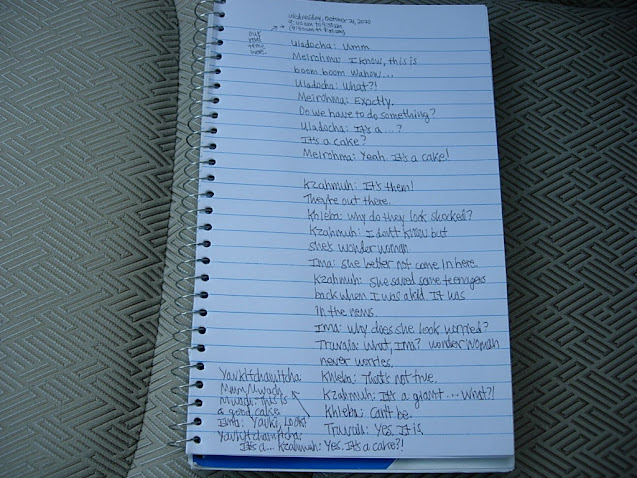 Wednesday, October 21, 2020
our
real
time
here.
Uladocha: Umm
Meirohma: I know, this is
boom boom wahow...
Uladocha: What?!
Meirohma: Exactly.
Do we have to do something?
Uladocha: It's a...?
It's a cake?
Meirohma: Yeah. It's a cake!
Kzahmuh: It's them!
They're out there.
Khleba: Why do they look shocked?
Kzahmuh: I don't know but
she's wonder woman.
Ima: She better not come in here.
Kzahmuh: She saved some teenagers
back when I was a kid. It was
in the news.
Ima: Why does she look worried?
Truvala: What, Ima? Wonder Woman
never worries.
Khleba: That's not true.
Kzahmuh: It's a giant... What?!
Khleba: Can't be.
Truvala: Yes. It is.
Kzahmuh: Yes. It's a cake?!
Yavkitchamitcha:
Mmm, Mwadi.
Mwadi: This is
a good cake.
Ima: Yavki, Look!
Yavkitchamitcha:
It's a...